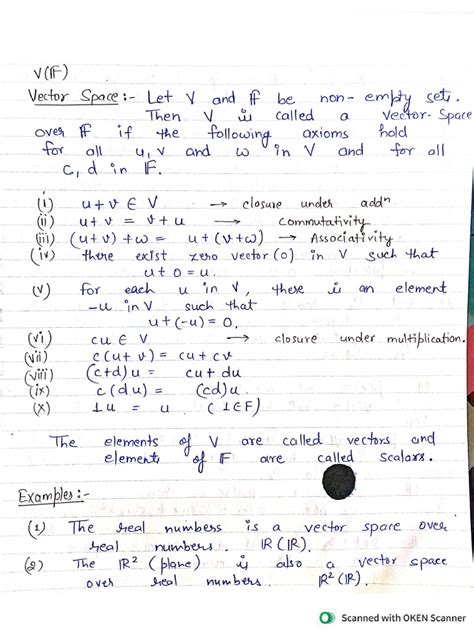 V(𝔽)
Vector Space :- Let V and 𝔽 be non-empty set.
Then V is called a Vector-Space
over 𝔽 if the following axioms hold
for all u, v and w in V and for all
c, d in 𝔽.
(i) u+v ∈ V → closure under addⁿ
(ii) u+v = v+u → Commutativity
(iii) (u+v)+w = u+(v+w) → Associativity
(iv) there exist zero vector (0) in V such that
u+0=u.
(v) for each u in V, there is an element
-u in V such that
u+(-u)=0.
(vi) cu ∈ V → closure under multiplication.
(vii) c(u+v) = cu+cv
(viii) (c+d)u = cu+du
(ix) c(du) = (cd)u.
(x) 1u = u (1∈F)
The elements of V are called vectors and
elements of 𝔽 are called Scalars.
Examples :-
(1) The real numbers is a vector space over
real numbers. ℝ(ℝ).
(2) The ℝ² (plane) is also a vector space
over real numbers. ℝ²(ℝ).
Scanned with OKEN Scanner